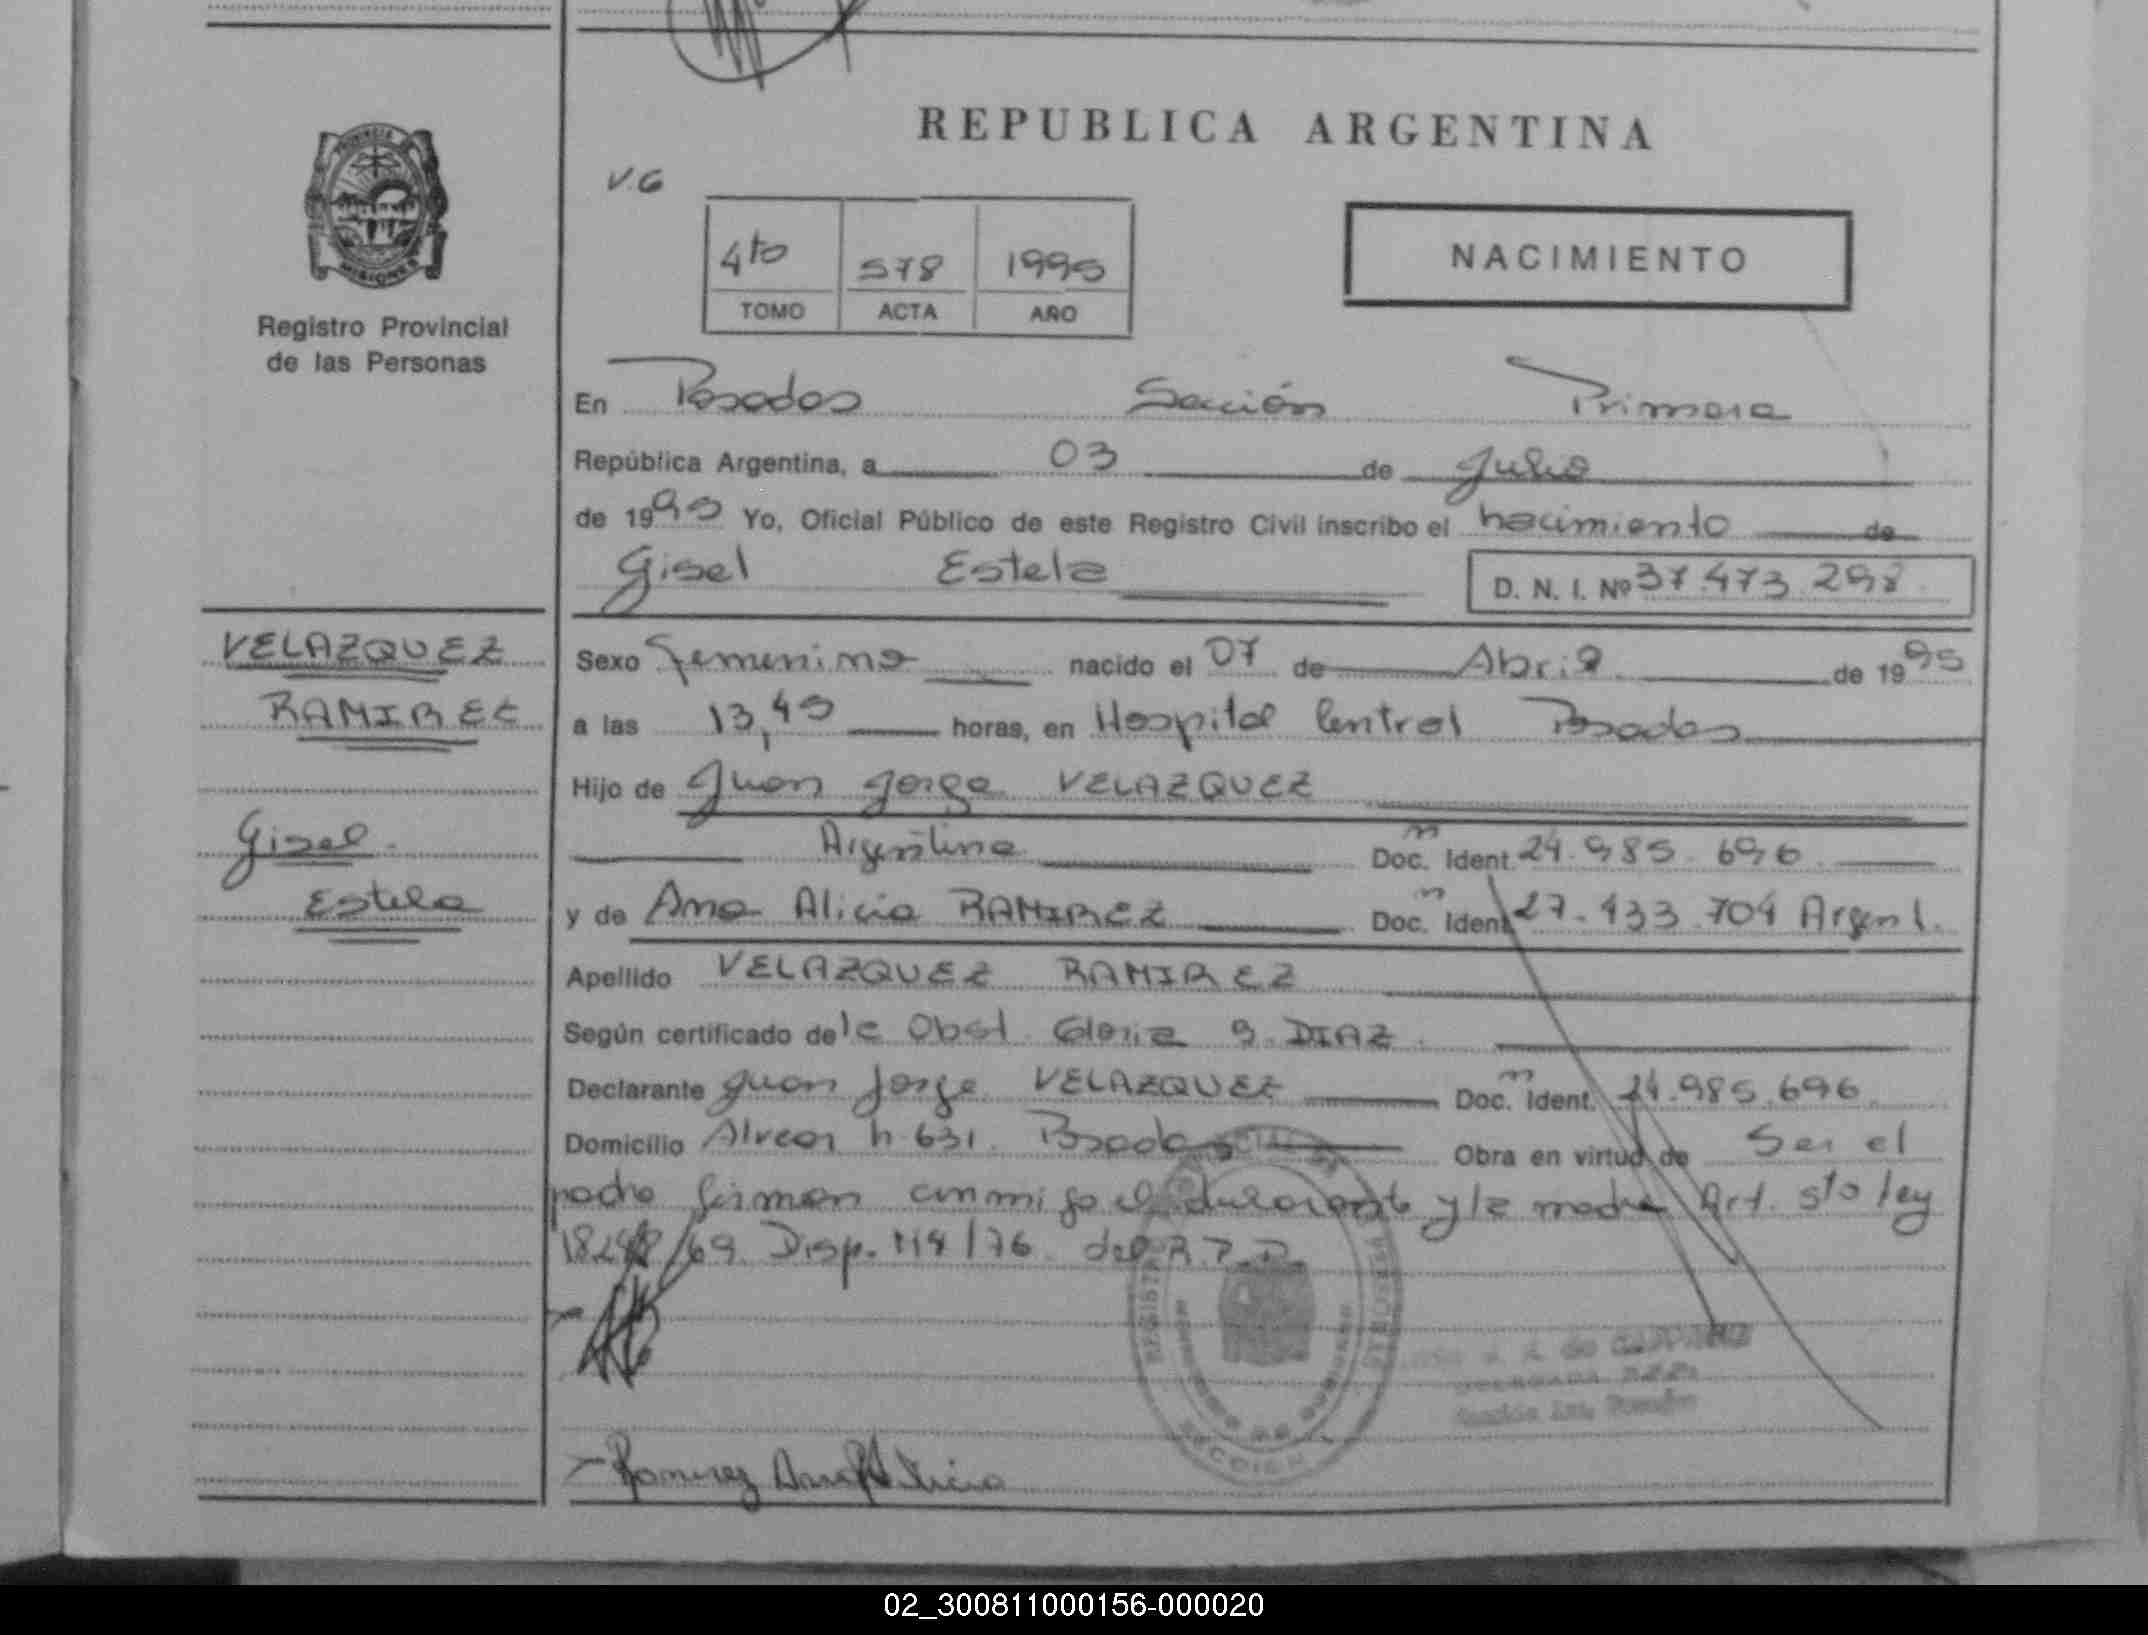 REPUBLICA ARGENTINA
V.G
4to 578 1995
TOMO ACTA AÑO
NACIMIENTO
PROVINCIA
MISIONES
Registro Provincial
de las Personas
En Posadas Sección Primera
República Argentina, a 03 de Julio
de 1995 Yo, Oficial Público de este Registro Civil inscribo el nacimiento de
Gisel Estela D. N. I. Nº 37.473.298
VELAZQUEZ
RAMIREZ
Gisel
Estela
Sexo Femenino nacido el 07 de Abril de 1995
a las 13,45 horas, en Hospital Central Posadas
Hijo de Juan Jorge VELAZQUEZ
Argentino Doc. Ident. 24.985.696
y de Ana Alicia RAMIREZ Doc. Ident. 27.433.704 Argent.
Apellido VELAZQUEZ RAMIREZ
Según certificado de la Obst. Gloria S. DIAZ
Declarante Juan Jorge VELAZQUEZ Doc. Ident. 24.985.696
Domicilio Alvear n 631. Posadas Obra en virtud de Ser el
padre firman conmigo el declarante y la madre Art. 5to ley
18248/69. Disp. 114/76. del R.P.P.
SECCION
Ramirez Ana Alicia
02_300811000156-000020